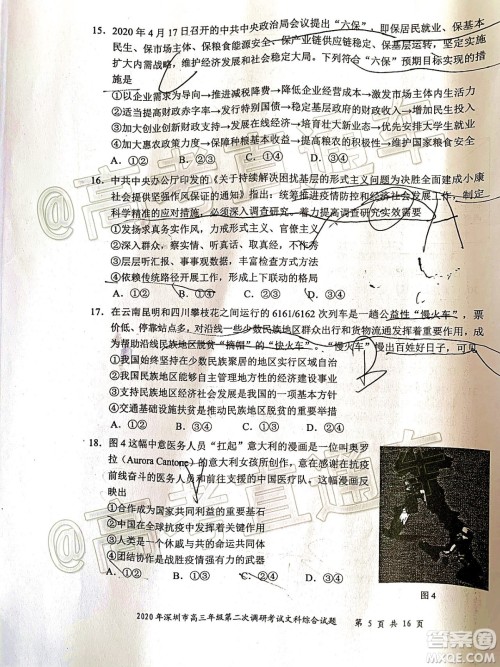 15. 2020年4月17日召开的中共中央政治局会议提出“六保”，即保居民就业、保基本
民生、保市场主体、保粮食能源安全、保产业链供应链稳定、保基层运转，坚定实施
扩大内需战略，维护经济发展和社会稳定大局。下列符合“六保”预期目标实现的措
施是
①以企业需求为导向→推进减税降费→降低企业经营成本→激发市场主体内生活力
②适当提高财政赤字率→发行特别国债→稳定基层政府的财政收入→保民生
③加大创业创新的财政奖励→培育壮大新业态→引导大众自主创业→增加居民就业
④加大惠农政策实施→保障种粮基本收益→提高粮农的积极性→维护国家粮食安全
A. ①② B. ①④ C. ②③ D. ③④
16. 中共中央办公厅印发的《关于持续解决困扰基层的形式主义问题为决胜全面建成小康
社会提供坚强作风保证的通知》指出：统筹推进疫情防控和经济社会发展工作，提出
科学精准的应对措施，必须深入调查研究。着力提高调查研究实效需要
①求真务实，力戒形式主义、官僚主义
②深入群众，察实情、听真话、取真经、谋实招
③层层听汇报、事事看材料，丰富检查方式方法
④依靠传统路径开展工作，加大督查检查力度
A. ①② B. ①③ C. ②④ D. ③④
17. 在云南昆明和四川攀枝花之间运行的6161/6162次列车是一趟公益性“慢火车”，票
价低、停靠站点多，对沿线一些少数民族地区群众出行和货物流通发挥重要作用，
成为帮助沿线民族地区脱贫“摘帽”的“快火车”。“慢火车”慢出百姓好日子，可见
①我国坚持在少数民族聚居的地区实行区域自治
②我国民族地区的发展与国家的发展紧密相连
③发展民族地区经济是实现民族平等的基本前提
④交通基础设施建设有利于加速民族地区脱贫
A. ①② B. ①③ C. ②④ D. ③④
18. 图4这幅中意医务人员“扛起”意大利的漫画是一位叫奥罗
拉（Aurora Cantone）的意大利女孩所创作，意在表达对在抗疫
前线奋战的意大利医务人员和前往支援的中国医疗队的敬意。
这幅漫画反映出
①合作成为国家共同利益的重要基石
②中国在全球抗疫中发挥着关键作用
③人类是一个休戚与共的命运共同体
④团结协作是战胜疫情强有力的武器
A. ①② B. ①③ C. ②④ D. ③④
图4
2020年深圳市高三年级第二次调研考试文科综合试题 第 5 页 共 16 页
@高考直通车
@高考直通车